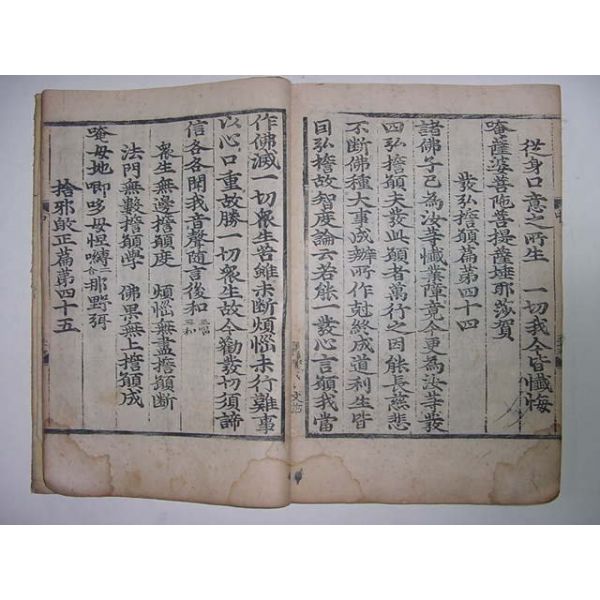 從身口意之所生　一切我今皆懺悔
唵薩婆菩陁菩提薩埵耶莎賀
發弘誓願篇第四十四
諸佛子已為汝等懺業障竟今更為汝等發
四弘誓願夫發此願者萬行之因能長慈悲
不斷佛種大事成辦所作尅終成道利生皆
因弘誓故智度論云若能一發心言願我當
作佛滅一切眾生苦雖未断煩惱未行難事
以心口重故勝一切眾生故今勸發切須諦
信各各開我音聲隨言後和
眾生無邊誓願度　煩惱無盡誓願断
法門無數誓願學　佛果無上誓願成
唵母地唧哆毋怛嚩二合那野弭
捨邪啟正篇第四十五